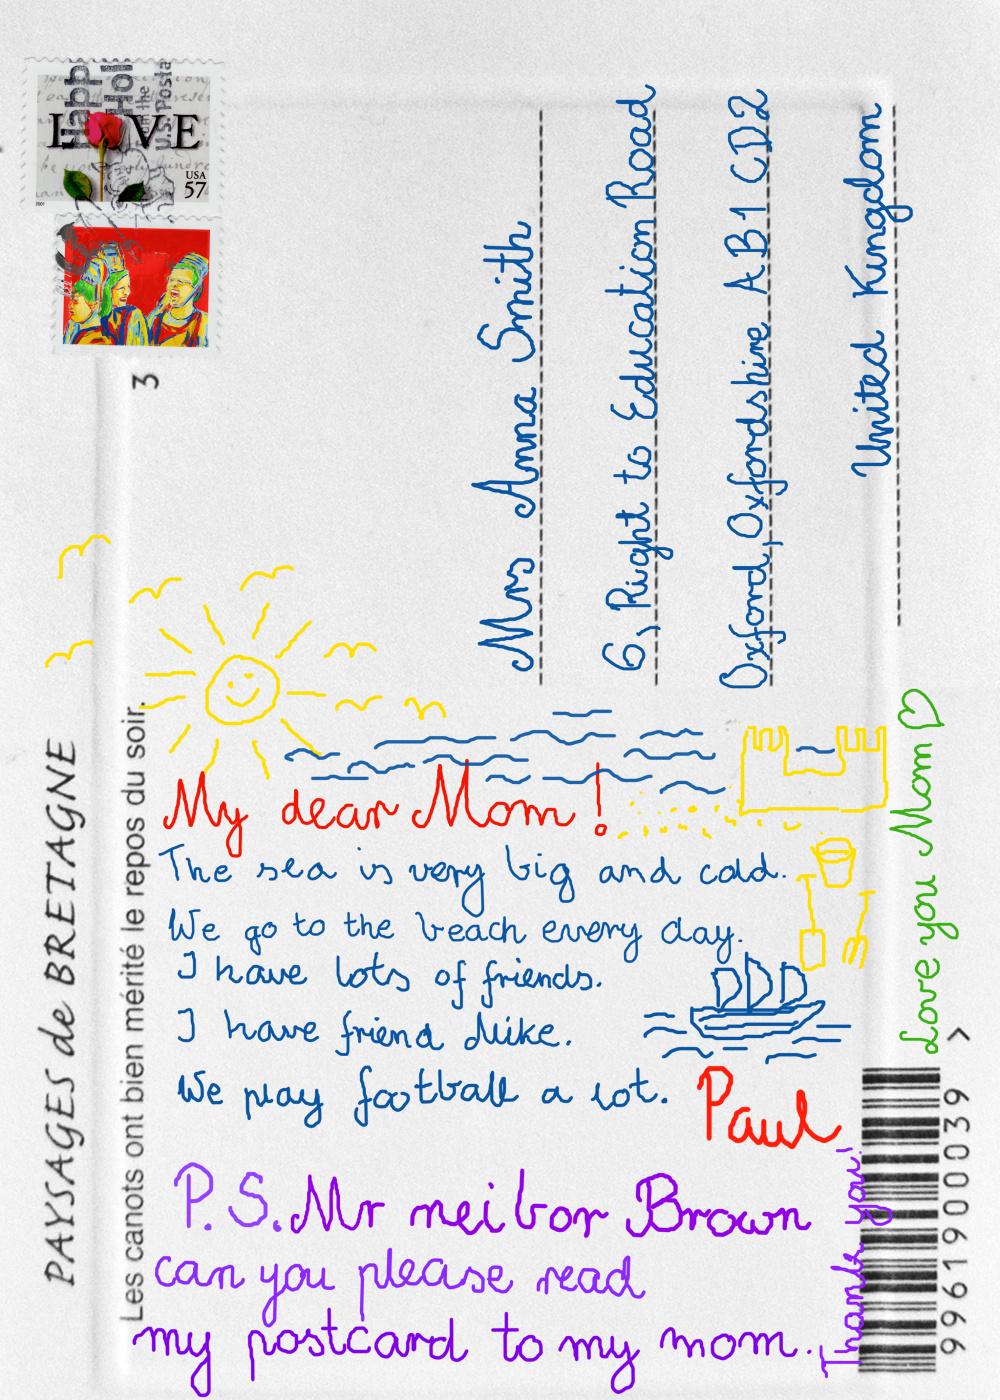 Happ
Hol
om the
U.S. Posta
LOVE
USA
57
2001
3
Mrs Anna Smith
6, Right to Education Road
Oxford, Oxfordshire AB1 CD2
United Kingdom
PAYSAGES de BRETAGNE
Les canots ont bien mérité le repos du soir.
My dear Mom!
The sea is very big and cold.
We go to the beach every day.
I have lots of friends.
I have friend Mike.
We play football a lot.
Paul
Love you Mom
P.S. Mr neibor Brown
can you please read
my postcard to my mom.
Thank you!
9961900039 >